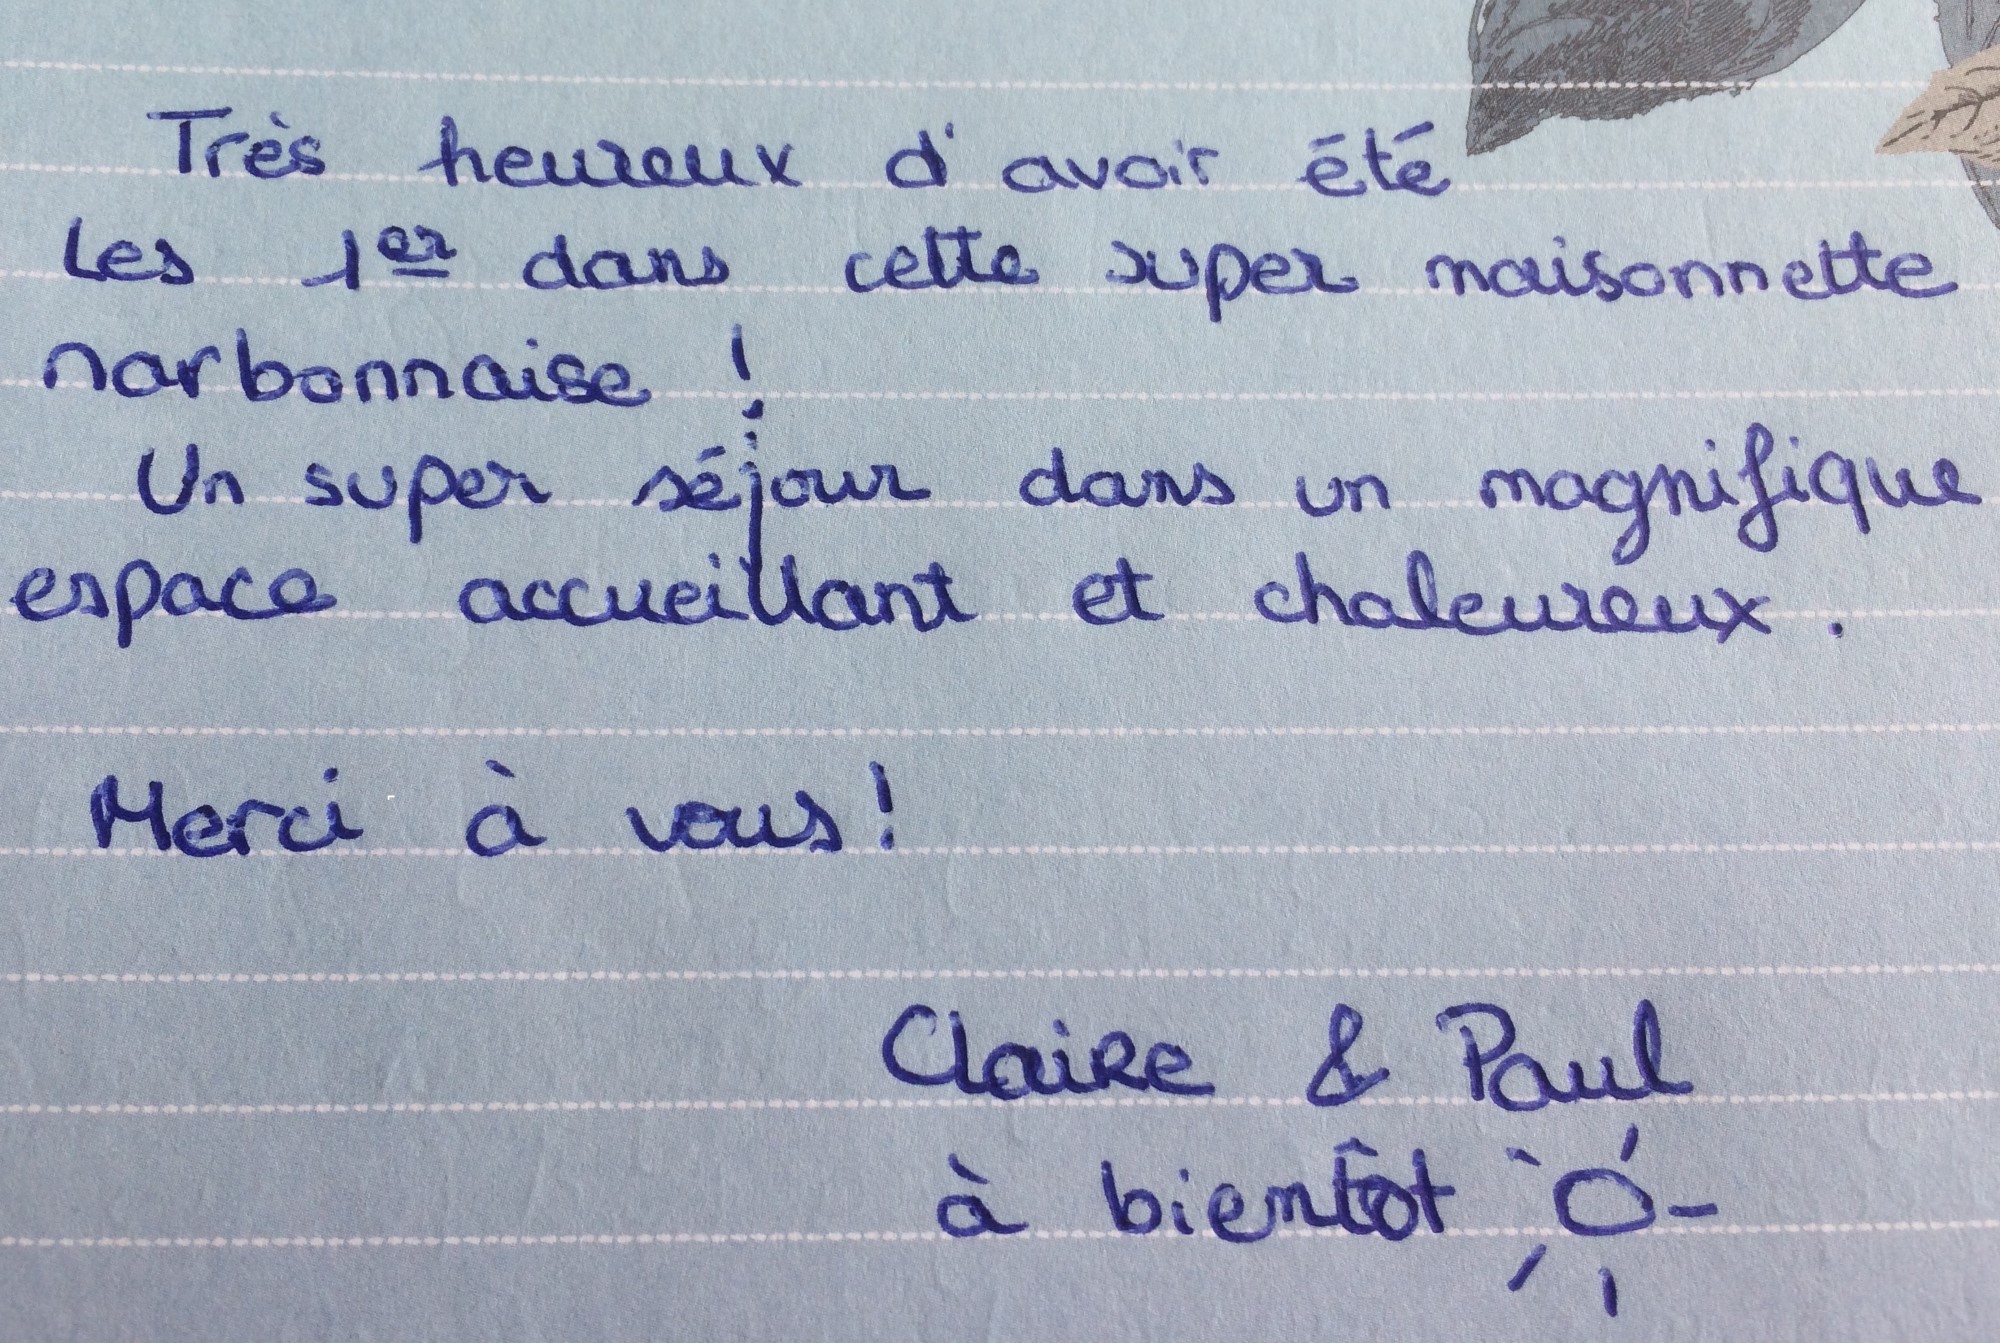 Très heureux d'avoir été
Les 1er dans cette super maisonnette
narbonnaise !
Un super séjour dans un magnifique
espace accueillant et chaleureux .
Merci à vous !
Claire & Paul
à bientôt